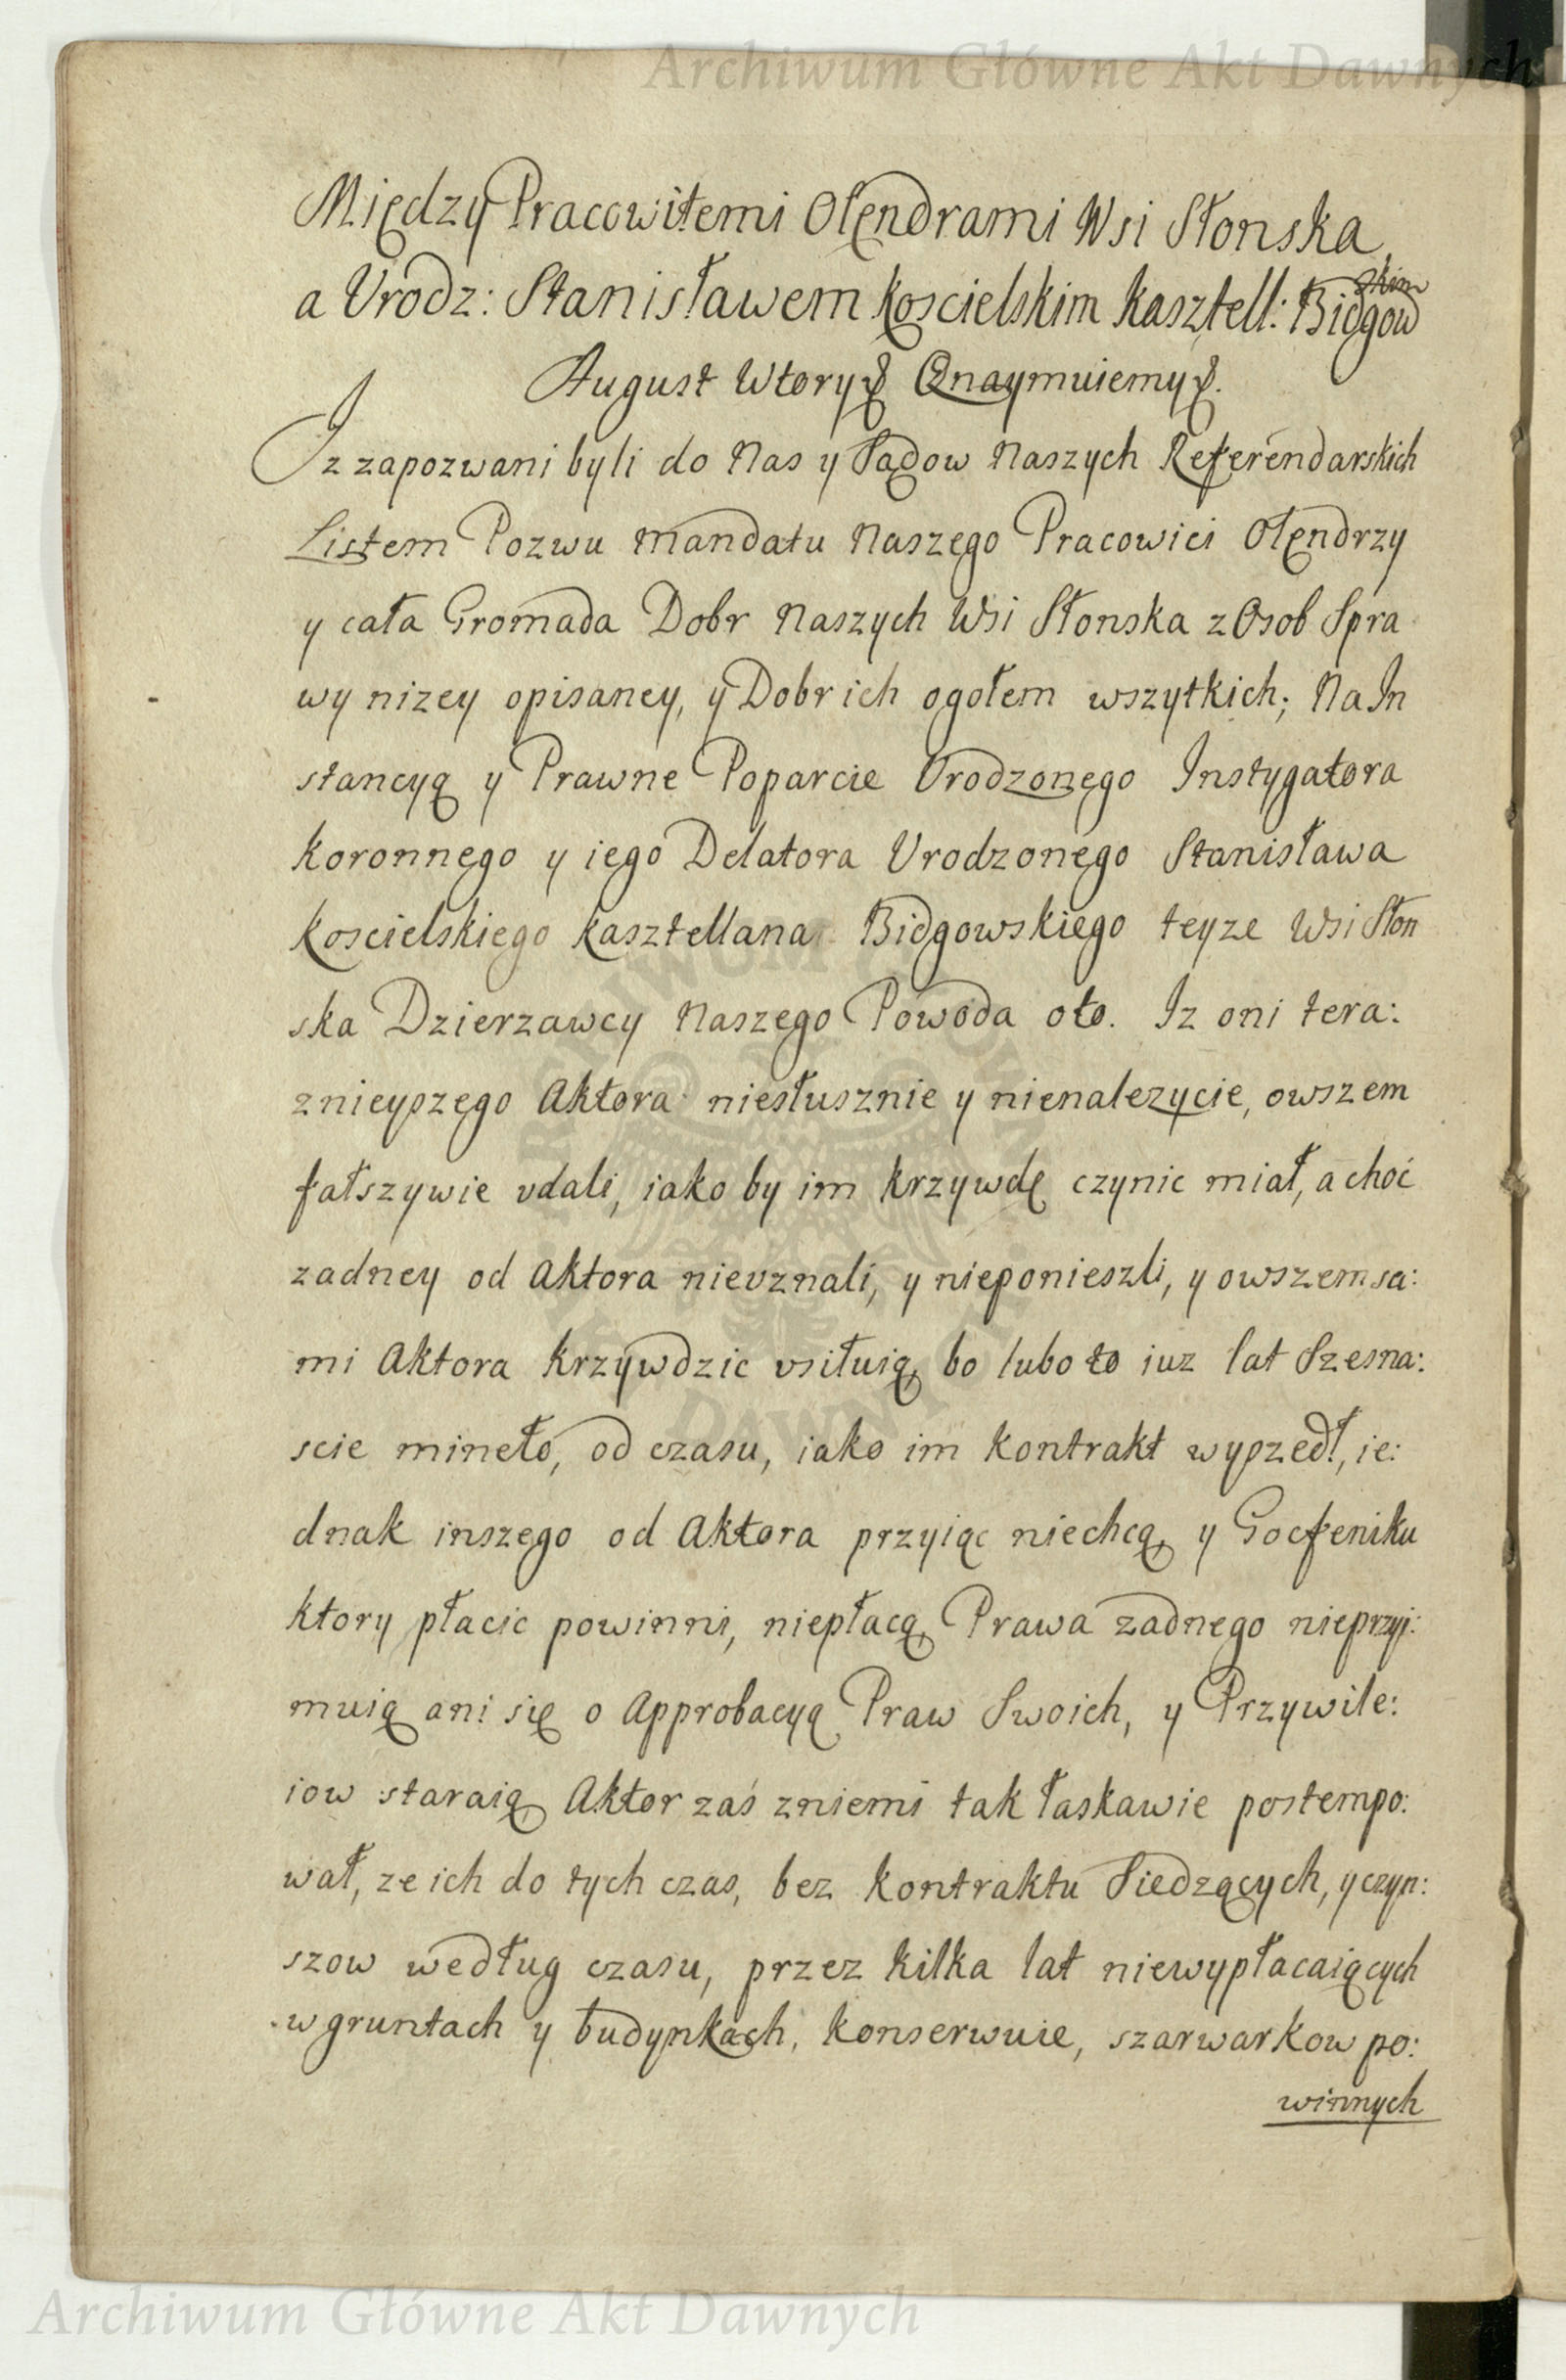 Archiwum Główne Akt Dawnych
Między Pracowitemi Olęndrami Wsi Słonska,
a Vrodz: Stanisławem Koscielskim Kasztell: Bidgow
skim
August Wtory &. Oznaymuiemy &.
Iz zapozwani byli do Nas y Sądow Naszych Referendarskich
Listem Pozwu Mandatu Naszego Pracowici Olęndrzy
y cała Gromada Dobr Naszych Wsi Słonska z Osob Spra
wy nizey opisaney, y Dobr ich ogołem wszytkich; Na In
stancyą y Prawne Poparcie Vrodzonego Instygatora
Koronnego y iego Delatora Vrodzonego Stanisława
Koscielskiego Kasztellana Bidgowskiego teyze Wsi Słon
ska Dzierzawcy Naszego Powoda oto. Iz oni tera:
znieyszego Aktora niesłusznie y nienalezycie, owszem
fałszywie vdali, iako by im krzywdę czynic miał, a choć
zadney od Aktora nievznali, y nieponieszli, y owszem sa:
mi Aktora krzywdzic vsiłuią, bo lubo to iuz lat Szesna:
scie mineło, od czasu, iako im kontrakt wyszedł, ie:
dnak inszego od Aktora przyiąc niechcą, y Gocfeniku
ktory płacic powinni, niepłacą, Prawa zadnego nieprzyi:
muią ani się o Approbacyą Praw Swoich, y Przywile:
iow staraią, Aktor zaś zniemi tak łaskawie postempo:
wał, ze ich do tych czas, bez kontraktu Siedzących, y czyn:
szow według czasu, przez kilka lat niewypłacaiących
w gruntach y budynkach, konserwuie, szarwarkow po:
winnych
Archiwum Główne Akt Dawnych